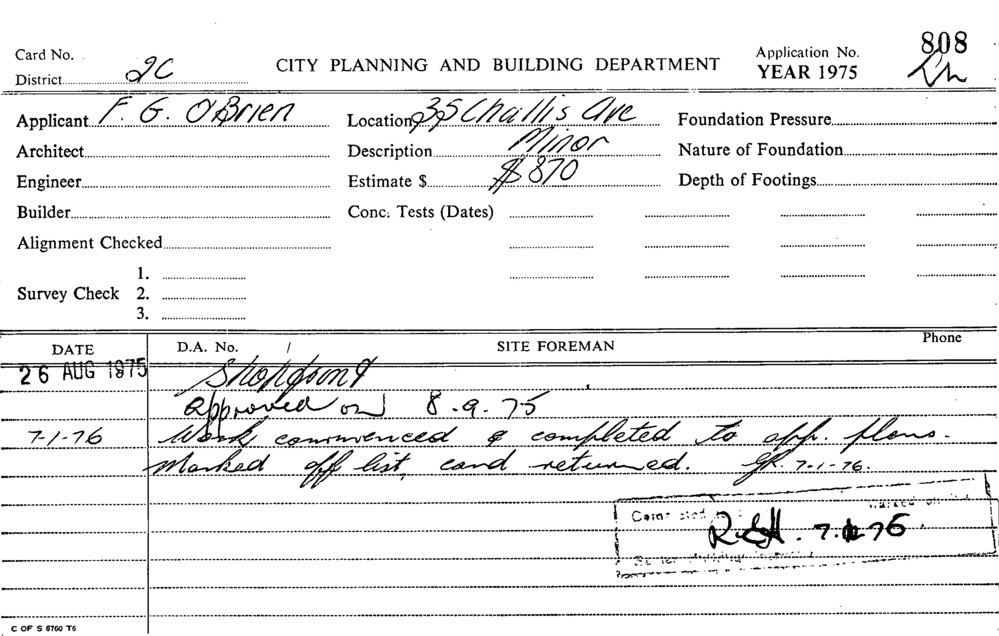 Card No.
District 2C
CITY PLANNING AND BUILDING DEPARTMENT
Application No. 808
YEAR 1975
Applicant F. G. O'Brien
Location 35 Challis Ave
Foundation Pressure
Architect
Description Minor
Nature of Foundation
Engineer
Estimate $ $870
Depth of Footings
Builder
Conc. Tests (Dates)
Alignment Checked
Survey Check 1.
2.
3.
DATE D.A. No. / SITE FOREMAN Phone
26 AUG 1975
Approved on 8.9.75
7-1-76 Work commenced & completed to app. plans.
Marked off list, card returned. 7-1-76.
Marked off
76
C OF S 6760 T6